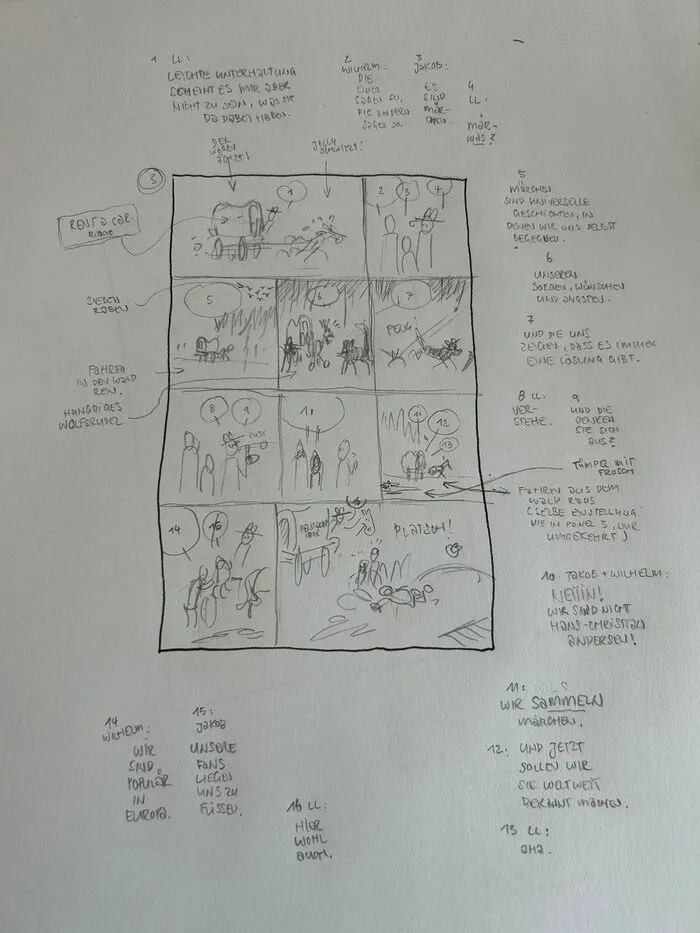 1 LL:
LEICHTE UNTERHALTUNG
SCHEINT ES MIR ABER
NICHT ZU SEIN, WAS SIE
DA DABEI HABEN.
2
WILHELM:
DIE
EINEN
SAGEN SO,
DIE ANDERN
SAGEN SO.
3
JAKOB:
ES
SIND
MÄR-
CHEN.
4
LL:
MÄR-
WAS?
DER
ÄCHZT!
3
1
2
3
4
RENT A CAR
5
MÄRCHEN
SIND UNIVERSELLE
GESCHICHTEN, IN
DENEN WIR UNS SELBST
BEGEGNEN.
SIEBEN
RABEN
5
6
7
PENG!
6
UNSEREN
SORGEN, WÜNSCHEN
UND ÄNGSTEN.
7
UND DIE UNS
ZEIGEN, DASS ES IMMER
EINE LÖSUNG GIBT.
FAHREN
IN DEN WALD
REIN.
HUNGRIGES
WOLFSRUDEL
8 LL:
VER-
STEHE.
9
UND DIE
DENKEN
SIE SICH
AUS?
8
9
10
11
12
13
TÜMPEL MIT
FROSCH
FAHREN AUS DEM
WALD RAUS
(SELBE EINSTELLUNG
WIE IN PANEL 3, NUR
UMGEKEHRT)
14
15
16
PLATSCH!
10 JAKOB + WILHELM:
NEIIIN!
WIR SIND NICHT
HANS-CHRISTIAN
ANDERSEN!
11:
WIR SAMMELN
MÄRCHEN.
12: UND JETZT
SOLLEN WIR
SIE WELTWEIT
BEKANNT MACHEN.
13 LL:
AHA.
14
WILHELM:
WIR
SIND
POPULÄR
IN
EUROPA.
15:
JAKOB
UNSERE
FANS
LIEGEN
UNS ZU
FÜSSEN.
16 LL:
HIER
WOHL
AUCH.